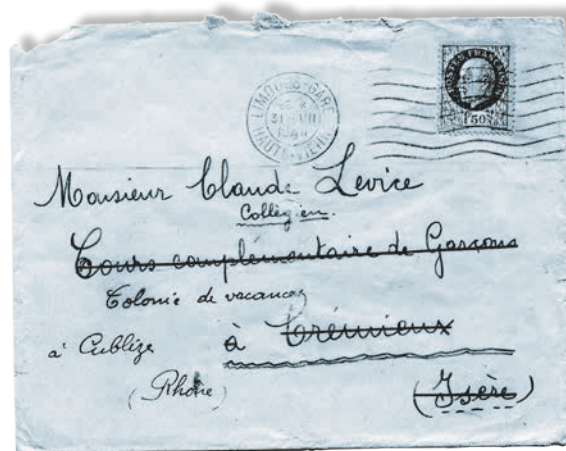 LIMOGES-GARE
31 VII
1944
HAUTE-VIENNE
POSTES FRANÇAISES
1F50
Monsieur Claude Levice
Collégien
Cours complémentaire de Garçons
Colonie de vacances
à Cublize à Crémieux
(Rhône) (Isère)